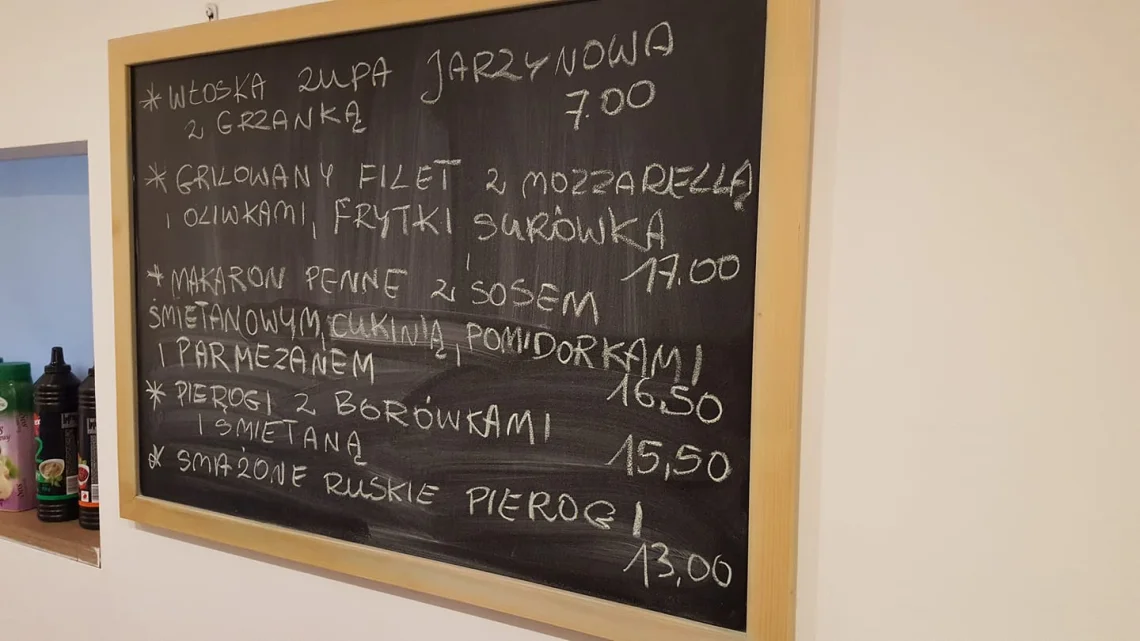 * WŁOSKA ZUPA JARZYNOWA
Z GRZANKĄ 7.00
* GRILOWANY FILET Z MOZZARELLĄ
I OLIWKAMI, FRYTKI, SURÓWKA
17.00
* MAKARON PENNE Z SOSEM
ŚMIETANOWYM, CUKINIĄ, POMIDORKAMI
I PARMEZANEM 16,50
* PIEROGI Z BORÓWKAMI
I ŚMIETANĄ 15,50
* SMAŻONE RUSKIE PIEROGI
13,00